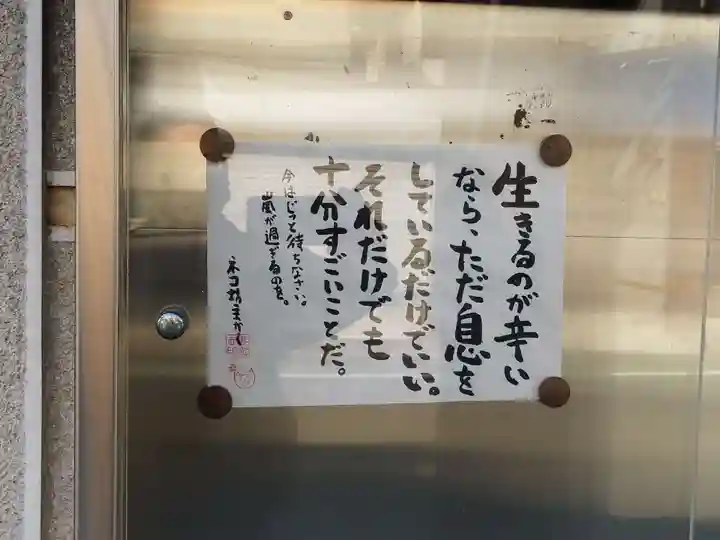 生きるのが辛い
なら、ただ息を
しているだけでいい。
それだけでも
十分すごいことだ。
今はじっと待ちなさい。
嵐が過ぎるのを。
ネコ坊主